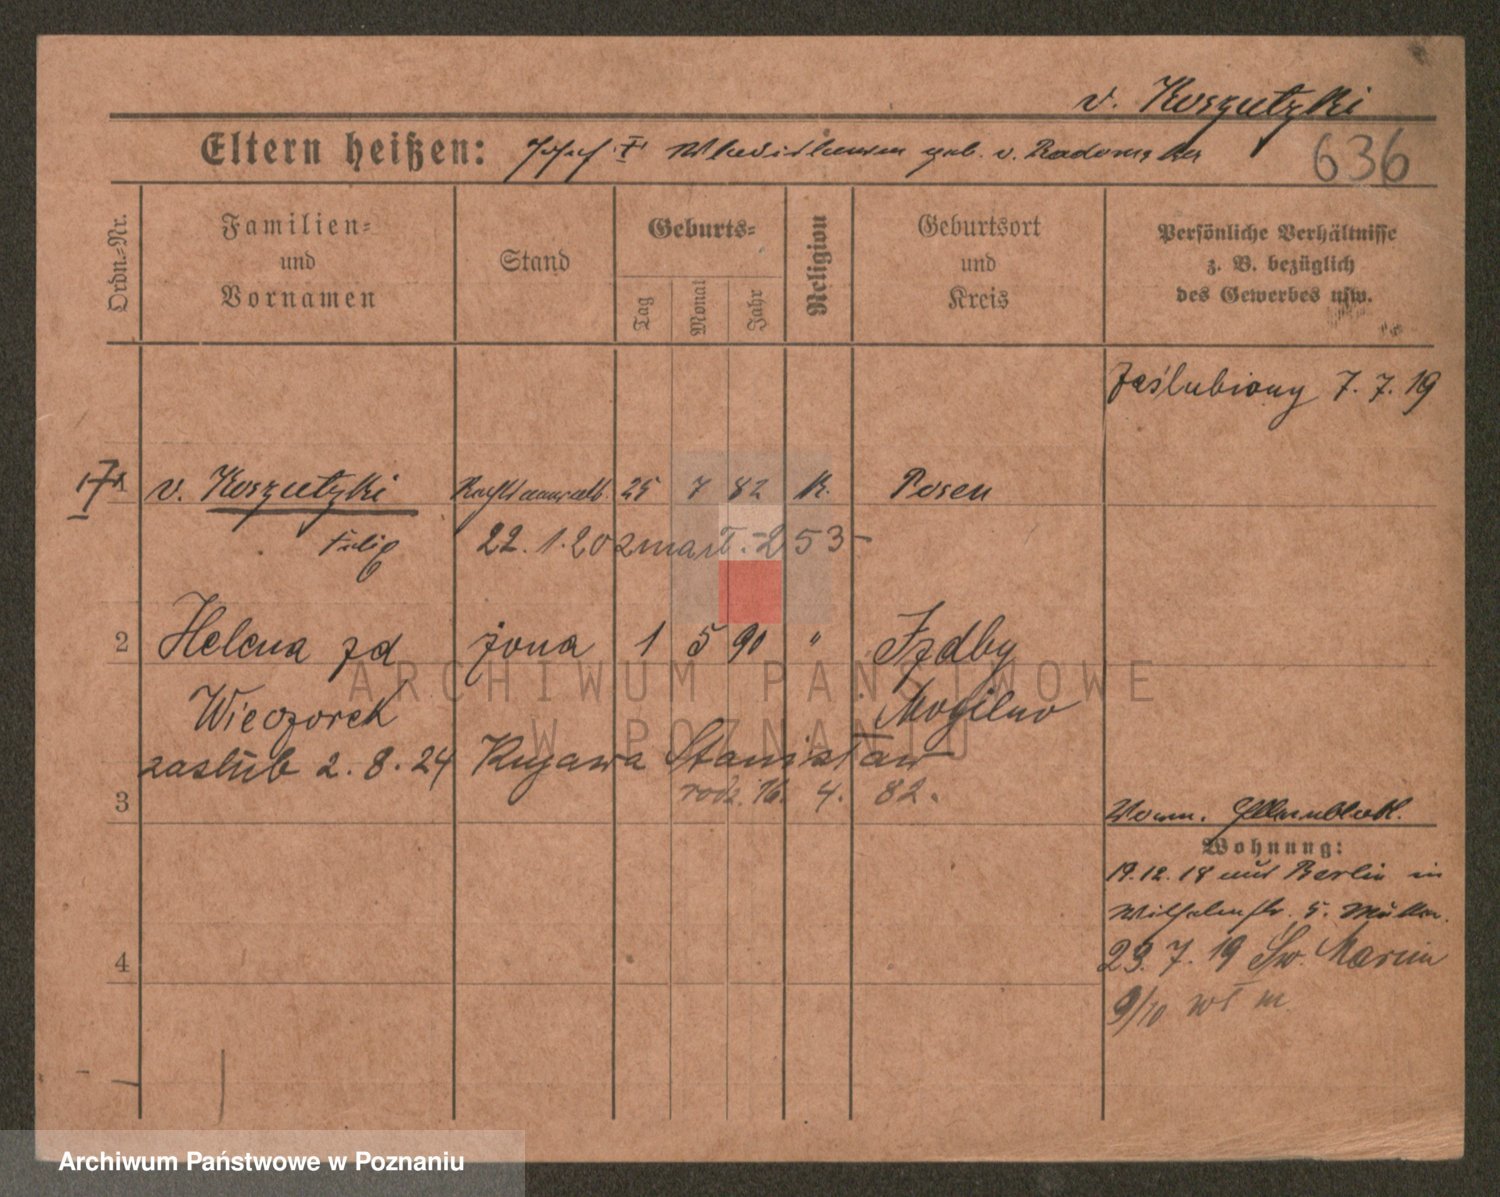 v. Koszutzki
Eltern heißen: Josef geb. v. Radomska
636
Ordn.-Nr.
Familien-
und
Vornamen
Stand
Geburts-
Tag
Monat
Jahr
Religion
Geburtsort
und
Kreis
Persönliche Verhältnisse
z. B. bezüglich
des Gewerbes usw.
Zaślubiony 7. 7. 19
v. Koszutzki Rechtsanwalt 25 7 82 K. Posen
22. 1. 20 zmarł. - 253 -
2 Helena zd żona 1 5 90 " Izdby
Wieczorek Mogilno
zaślub 2. 8. 24 Kujawa Stanisław
3 rodz. 16. 4. 82.
Wohnung:
19.12.18 aus Berlin in
Wilhelmstr. 5. Müller.
4
23. 7. 19 Św. Marcin
9/10 wł m.
ARCHIWUM PAŃSTWOWE
W POZNANIU
Archiwum Państwowe w Poznaniu